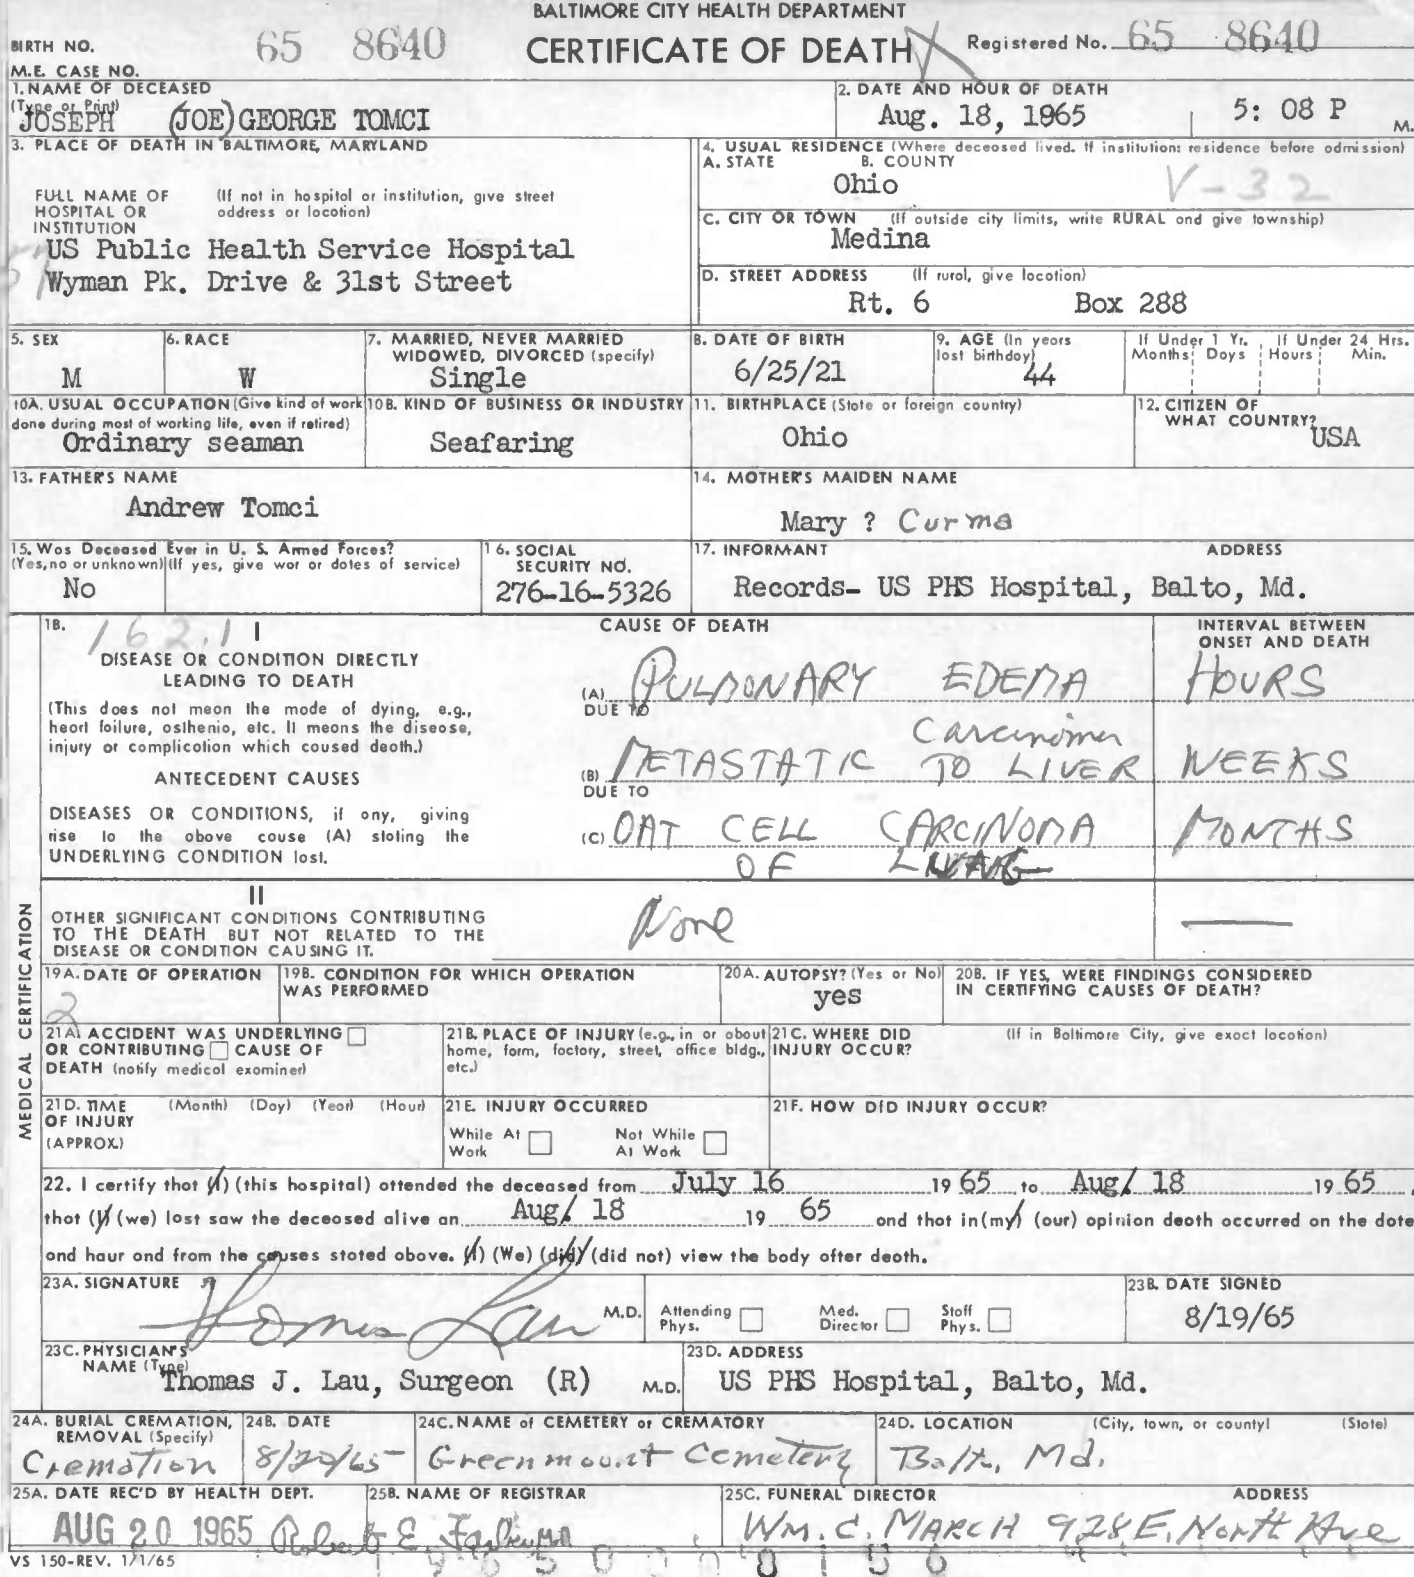 BALTIMORE CITY HEALTH DEPARTMENT
BIRTH NO. 65 8640 CERTIFICATE OF DEATH Registered No. 65 8640
M.E. CASE NO.
1. NAME OF DECEASED
(Type or Print)
JOSEPH (JOE) GEORGE TOMCI
2. DATE AND HOUR OF DEATH
Aug. 18, 1965 5: 08 P M.
3. PLACE OF DEATH IN BALTIMORE, MARYLAND
FULL NAME OF HOSPITAL OR INSTITUTION (If not in hospital or institution, give street address or location)
US Public Health Service Hospital
Wyman Pk. Drive & 31st Street
4. USUAL RESIDENCE (Where deceased lived. If institution: residence before admission)
A. STATE B. COUNTY
Ohio V-32
C. CITY OR TOWN (If outside city limits, write RURAL and give township)
Medina
D. STREET ADDRESS (If rural, give location)
Rt. 6 Box 288
5. SEX
M
6. RACE
W
7. MARRIED, NEVER MARRIED
WIDOWED, DIVORCED (specify)
Single
8. DATE OF BIRTH
6/25/21
9. AGE (In years
last birthday)
44
If Under 1 Yr. If Under 24 Hrs.
Months Days Hours Min.
10A. USUAL OCCUPATION (Give kind of work
done during most of working life, even if retired)
Ordinary seaman
10B. KIND OF BUSINESS OR INDUSTRY
Seafaring
11. BIRTHPLACE (State or foreign country)
Ohio
12. CITIZEN OF
WHAT COUNTRY?
USA
13. FATHER'S NAME
Andrew Tomci
14. MOTHER'S MAIDEN NAME
Mary ? Curma
15. Was Deceased Ever in U. S. Armed Forces?
(Yes, no or unknown) (If yes, give war or dates of service)
No
16. SOCIAL
SECURITY NO.
276-16-5326
17. INFORMANT ADDRESS
Records- US PHS Hospital, Balto, Md.
MEDICAL CERTIFICATION
18. 162.1 I
DISEASE OR CONDITION DIRECTLY
LEADING TO DEATH
(This does not mean the mode of dying, e.g.,
heart failure, asthenia, etc. It means the disease,
injury or complication which caused death.)
ANTECEDENT CAUSES
DISEASES OR CONDITIONS, if any, giving
rise to the above cause (A) stating the
UNDERLYING CONDITION last.
CAUSE OF DEATH
INTERVAL BETWEEN
ONSET AND DEATH
(A) PULMONARY EDEMA HOURS
DUE TO
Carcinoma
(B) METASTATIC TO LIVER WEEKS
DUE TO
(C) OAT CELL CARCINOMA MONTHS
OF LUNG
II
OTHER SIGNIFICANT CONDITIONS CONTRIBUTING
TO THE DEATH BUT NOT RELATED TO THE
DISEASE OR CONDITION CAUSING IT.
None
19A. DATE OF OPERATION
2
19B. CONDITION FOR WHICH OPERATION
WAS PERFORMED
20A. AUTOPSY? (Yes or No)
yes
20B. IF YES, WERE FINDINGS CONSIDERED
IN CERTIFYING CAUSES OF DEATH?
21A. ACCIDENT WAS UNDERLYING
OR CONTRIBUTING CAUSE OF
DEATH (notify medical examiner)
21B. PLACE OF INJURY (e.g., in or about
home, farm, factory, street, office bldg.,
etc.)
21C. WHERE DID
INJURY OCCUR?
(If in Baltimore City, give exact location)
21D. TIME (Month) (Day) (Year) (Hour)
OF INJURY
(APPROX.)
21E. INJURY OCCURRED
While At Work Not While At Work
21F. HOW DID INJURY OCCUR?
22. I certify that (I) (this hospital) attended the deceased from July 16 19 65 to Aug/ 18 19 65,
that (I) (we) last saw the deceased alive on Aug/ 18 19 65 and that in (my) (our) opinion death occurred on the date
and hour and from the causes stated above. (I) (We) (did) (did not) view the body after death.
23A. SIGNATURE
Thomas Lau M.D.
Attending Phys. Med. Director Staff Phys.
23B. DATE SIGNED
8/19/65
23C. PHYSICIAN'S
NAME (Type)
Thomas J. Lau, Surgeon (R) M.D.
23D. ADDRESS
US PHS Hospital, Balto, Md.
24A. BURIAL CREMATION,
REMOVAL (Specify)
Cremation
24B. DATE
8/20/65
24C. NAME of CEMETERY or CREMATORY
Greenmount Cemetery
24D. LOCATION (City, town, or county) (State)
Balto, Md.
25A. DATE REC'D BY HEALTH DEPT.
AUG 20 1965
25B. NAME OF REGISTRAR
Robert E.
25C. FUNERAL DIRECTOR ADDRESS
Wm. C. MARCH 928 E. North Ave
VS 150-REV. 1/1/65